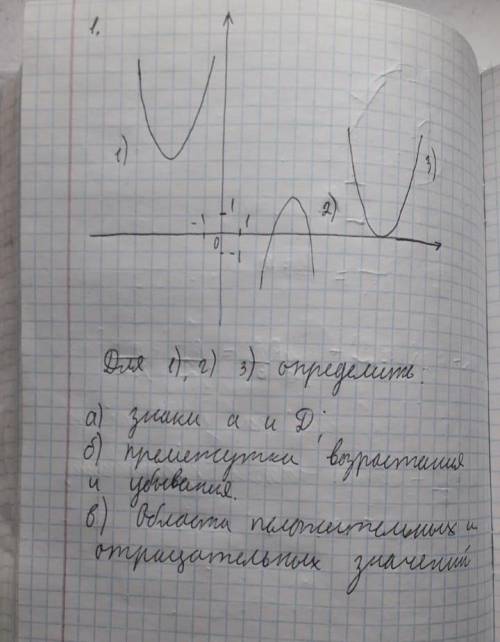 1.
1)
2)
3)
1
-1
1
0
-1
Для 1), 2) 3) определить:
а) знаки а и D;
б) промежутки возрастания
и убывания.
в) Области положительных и
отрицательных значений